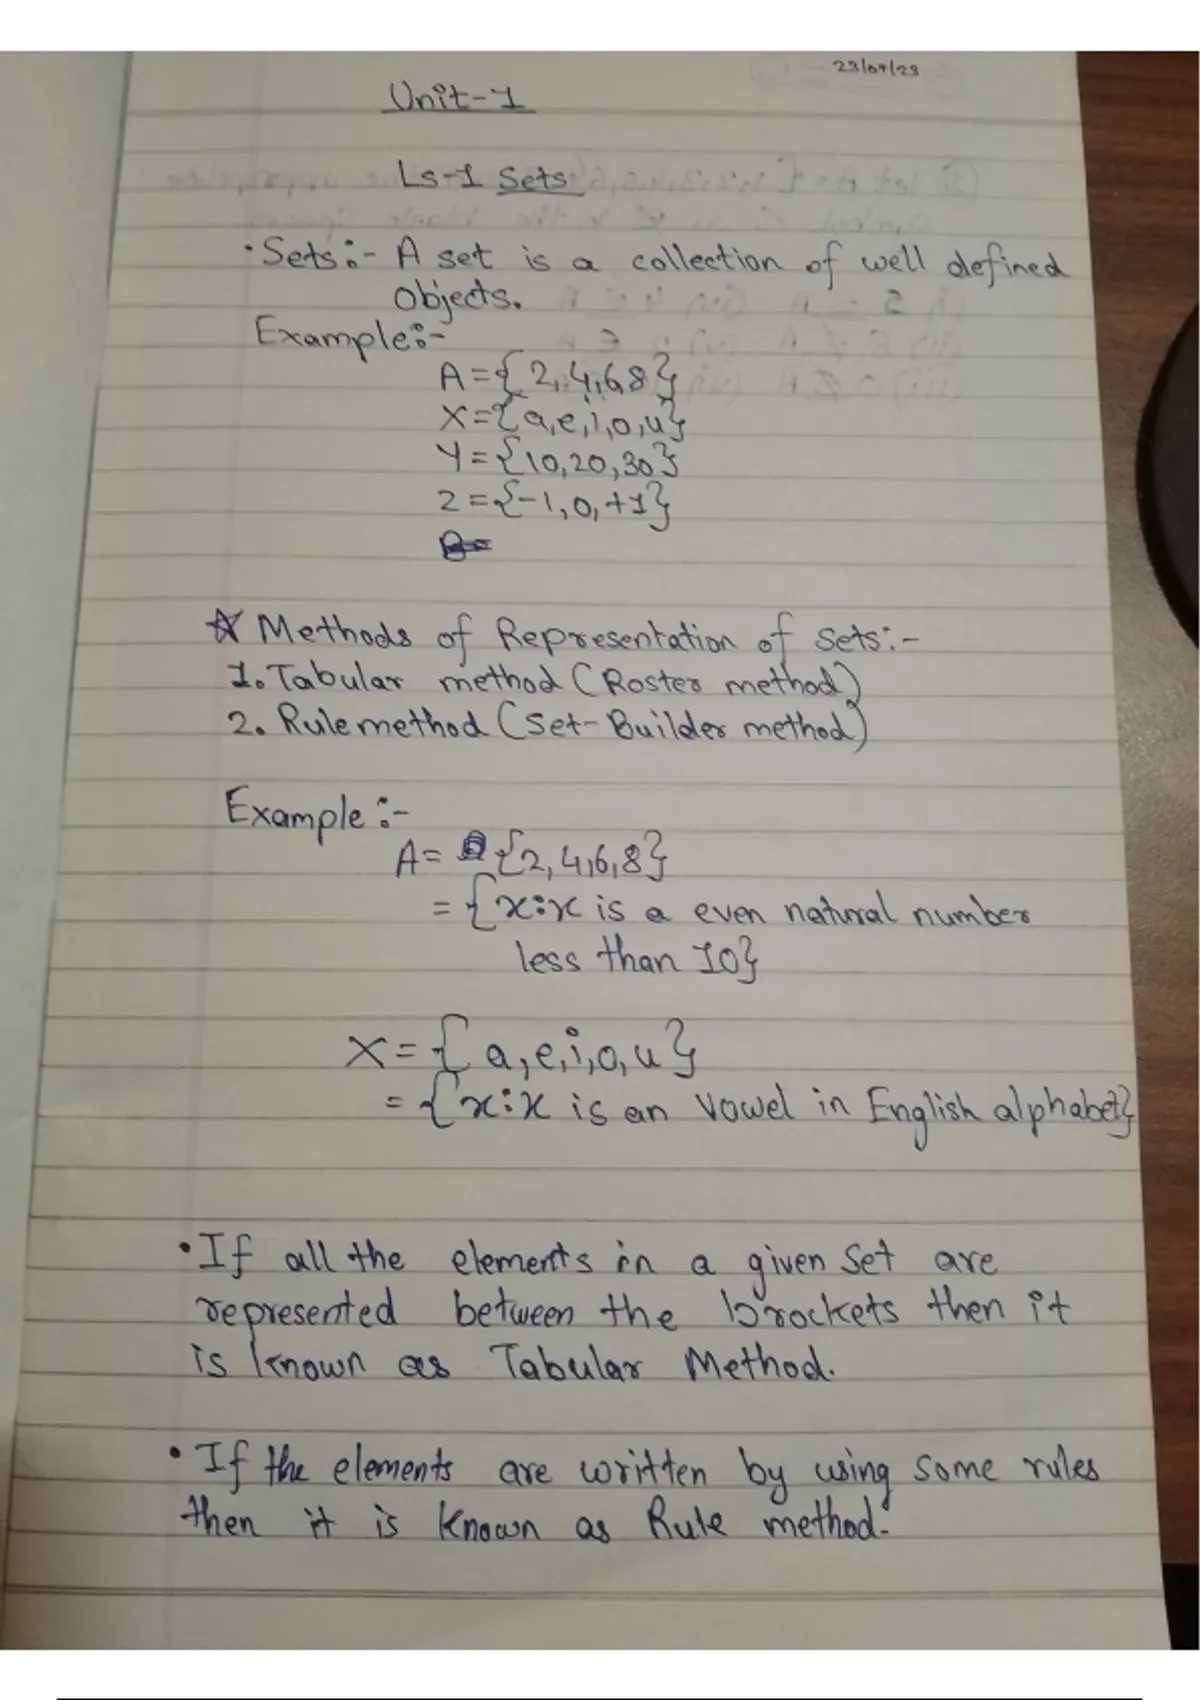 23/07/23
Unit-1
Ls-1 Sets
• Sets:- A set is a collection of well defined
objects.
Example:-
A={2,4,6,8}
X={a,e,i,o,u}
Y={10,20,30}
Z={-1,0,+1}
☆ Methods of Representation of sets:-
1. Tabular method (Roster method)
2. Rule method (Set-Builder method)
Example:-
A= {2,4,6,8}
={x:x is a even natural number
less than 10}
X={a,e,i,o,u}
={x:x is an vowel in English alphabet}
• If all the elements in a given Set are
represented between the brockets then it
is known as Tabular Method.
• If the elements are written by using some rules
then it is known as Rule method.